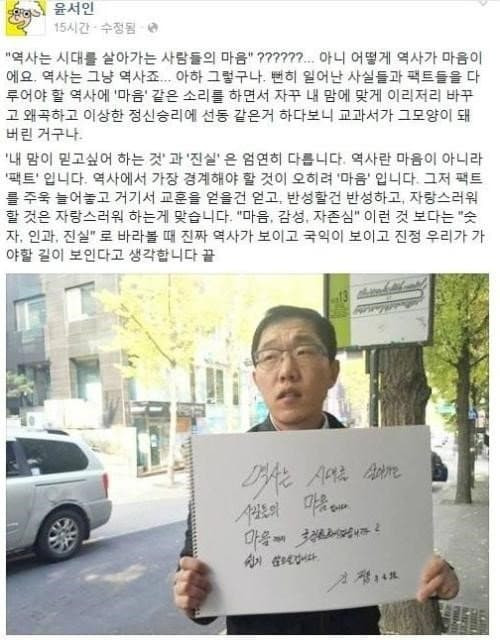 윤서인
15시간 · 수정됨 ·
"역사는 시대를 살아가는 사람들의 마음" ??????... 아니 어떻게 역사가 마음이
에요. 역사는 그냥 역사죠... 아하 그렇구나. 뻔히 일어난 사실들과 팩트들을 다
루어야 할 역사에 '마음' 같은 소리를 하면서 자꾸 내 맘에 맞게 이리저리 바꾸
고 왜곡하고 이상한 정신승리에 선동 같은거 하다보니 교과서가 그모양이 돼
버린 거구나.
'내 맘이 믿고싶어 하는 것' 과 '진실' 은 엄연히 다릅니다. 역사란 마음이 아니라
'팩트' 입니다. 역사에서 가장 경계해야 할 것이 오히려 '마음' 입니다. 그저 팩트
를 주욱 늘어놓고 거기서 교훈을 얻을건 얻고, 반성할건 반성하고, 자랑스러워
할 것은 자랑스러워 하는게 맞습니다. "마음, 감성, 자존심" 이런 것 보다는 "숫
자, 인과, 진실" 로 바라볼 때 진짜 역사가 보이고 국익이 보이고 진정 우리가 가
야할 길이 보인다고 생각합니다 끝
13
역사는 시대를 살아가는
사람들의 마음입니다.
마음까지 국정화하시겠습니까?
쉽지 않으실겁니다.